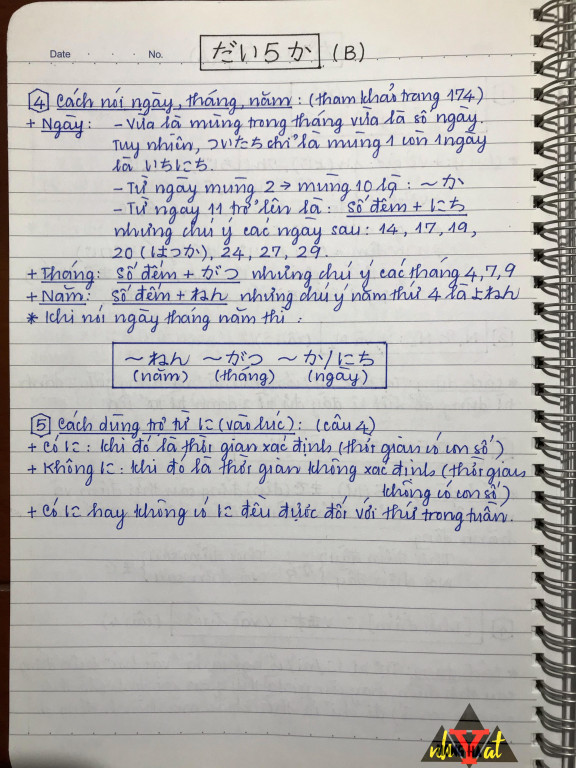 Date . . . No.
だい5か (B)
4 Cách nói ngày, tháng, năm: (tham khảo trang 174)
+ Ngày: - Vừa là mùng trong tháng vừa là số ngày.
Tuy nhiên, ついたち chỉ là mùng 1 còn 1 ngày
là いちにち.
- Từ ngày mùng 2 → mùng 10 là: ~か
- Từ ngày 11 trở lên là: số đếm + にち
nhưng chú ý các ngày sau: 14, 17, 19,
20 (はつか), 24, 27, 29.
+ Tháng: số đếm + がつ nhưng chú ý các tháng 4,7,9
+ Năm: số đếm + ねん nhưng chú ý năm thứ 4 là よねん
* Khi nói ngày tháng năm thì:
~ねん ~がつ ~か/にち
(năm) (tháng) (ngày)
5 Cách dùng trợ từ に (vào lúc): (câu 4)
+ Có に: khi đó là thời gian xác định (thời gian có con số)
+ Không に: khi đó là thời gian không xác định (thời gian
không có con số)
+ Có に hay không có に đều được đối với thứ trong tuần.